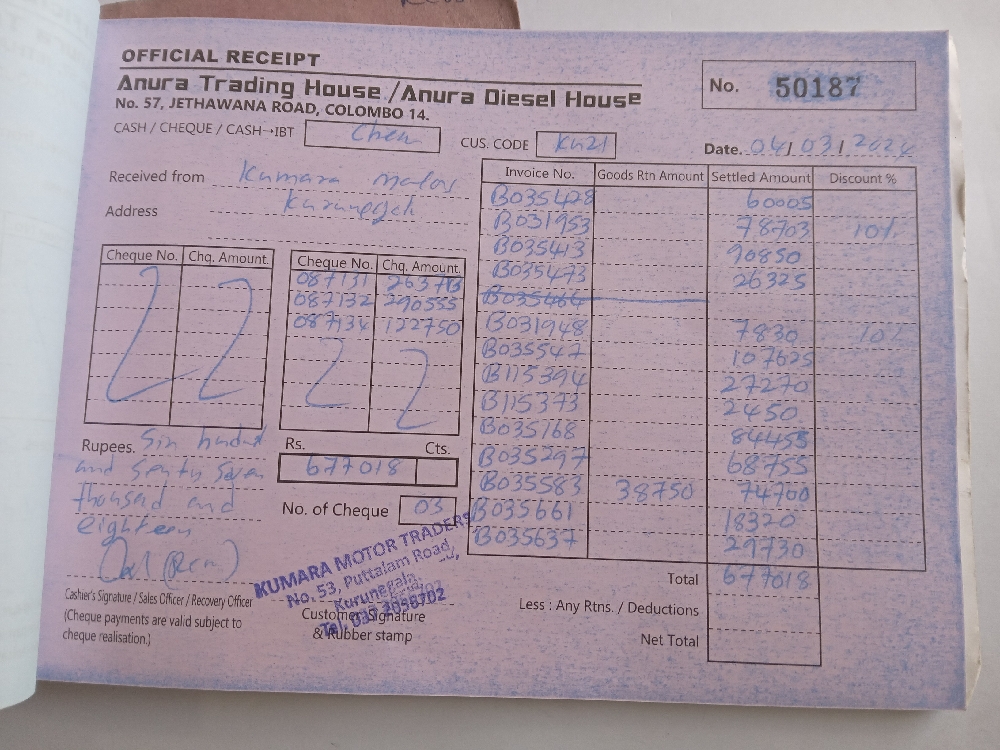 OFFICIAL RECEIPT
Anura Trading House / Anura Diesel House
No. 57, JETHAWANA ROAD, COLOMBO 14.
No. 50187
CASH / CHEQUE / CASH→IBT
CUS. CODE Ku21
Date. 04/03/2024
Received from Kumara Motors
Address
Cheque No. Chq. Amount.
Cheque No. Chq. Amount.
087131 263713
087132 290555
087134 122750
Invoice No. Goods Rtn Amount Settled Amount Discount %
B035428 60005
B031953 78703 10%
B035413 90850
B035473 26325
B035464
B031948 7830 10%
B035547 107625
B115394 27270
B115373 2450
B035168 84455
B035297 68755
B035583 38750 74700
B035661 18320
B035637 29730
Total 677018
Less : Any Rtns. / Deductions
Net Total
Rupees. Six hundred
and seventy seven
thousand and
eighteen
Rs. Cts.
677018
No. of Cheque 03
Cashier's Signature / Sales Officer / Recovery Officer
(Cheque payments are valid subject to
cheque realisation.)
KUMARA MOTOR TRADERS
No. 53, Puttalam Road,
Kurunegala.
Customer Signature
& Rubber stamp